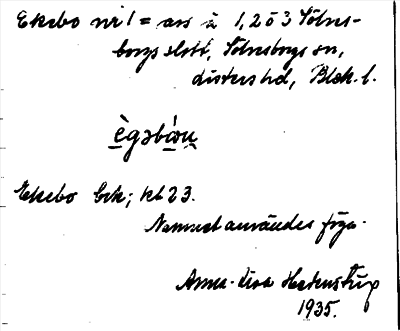 Ekebo nr 1 = ars å 1, 2 o 3 Sölves-
borgs slott, Sölvesborgs sn,
Listers hd, Blek. l.
ègəbωn
Ekebo bek; kbl 23.
Namnet användes föga.
Anna-Lisa
1935.